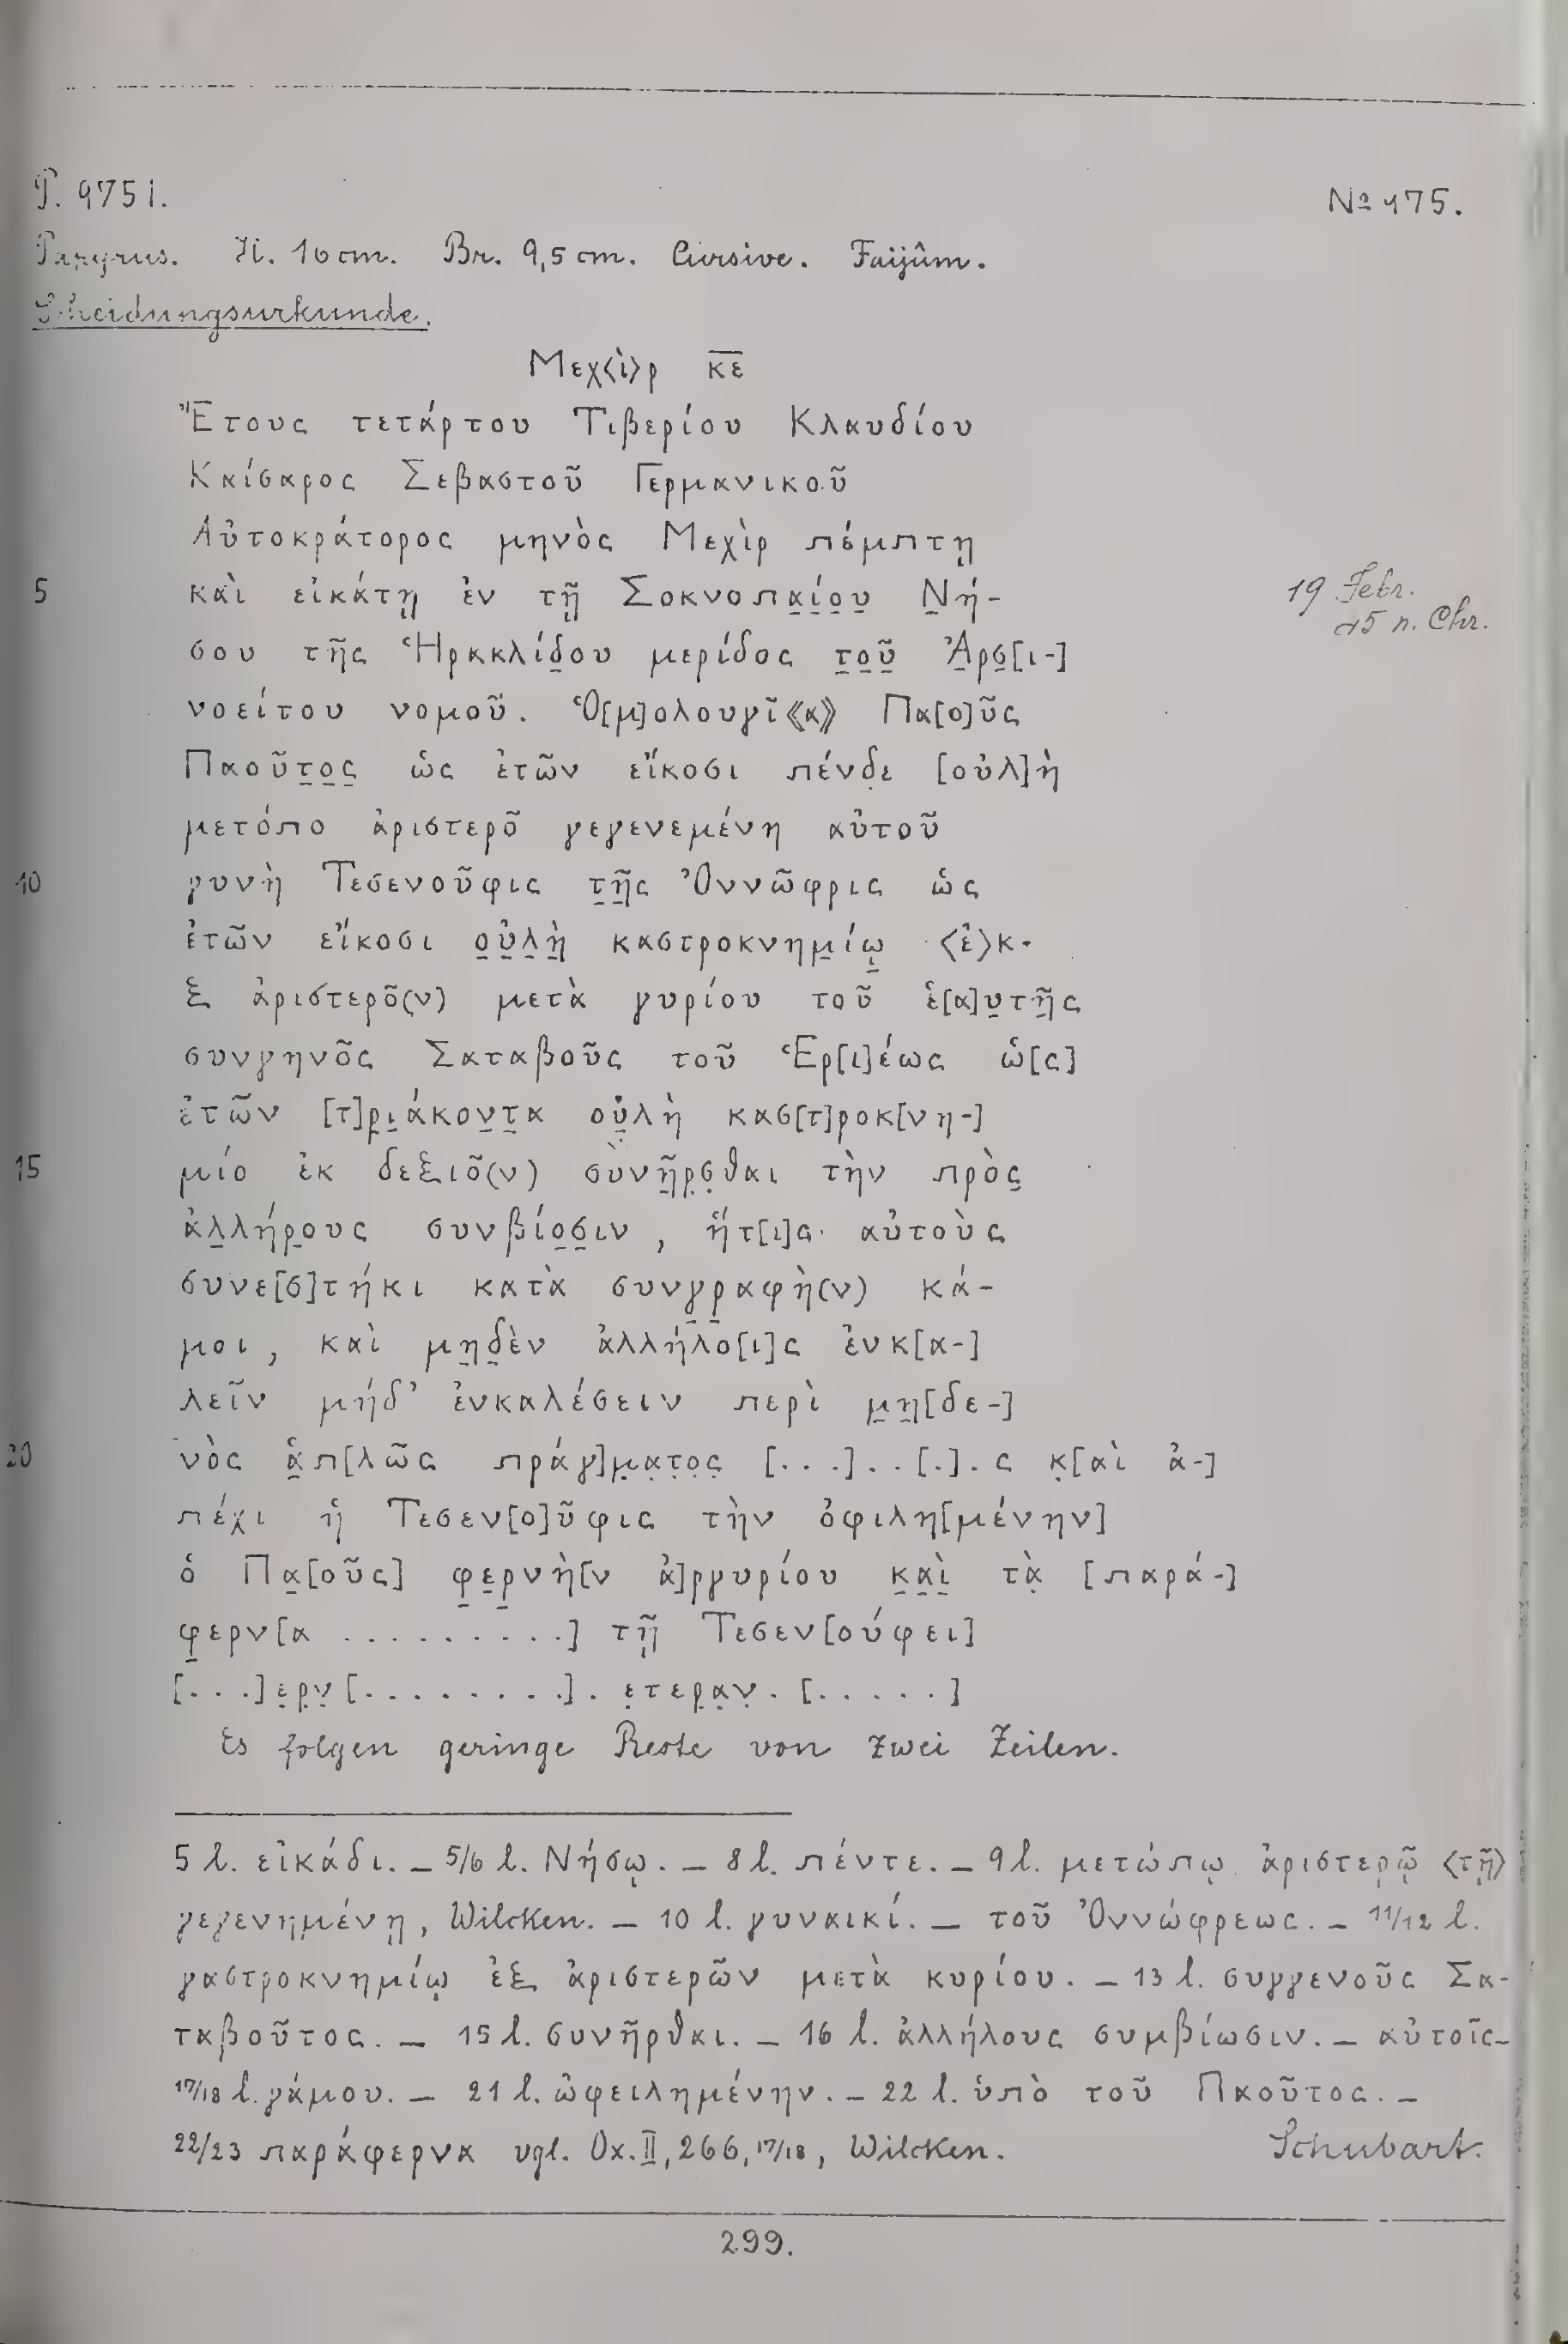 P. 9751. № 975.
Papyrus. H. 16 cm. Br. 9,5 cm. Cursive. Faijûm.
Scheidungsurkunde.
Μεχ⟨ὶ⟩ρ κ̅ε̅
Ἔτους τετάρτου Τιβερίου Κλαυδίου
Καίσαρος Σεβαστοῦ Γερμανικοῦ
Αὐτοκράτορος μηνὸς Μεχὶρ πέμπτῃ
5 καὶ εἰκάτῃ ἐν τῇ Σοκνοπα̣ί̣ο̣υ̣ Ν̣ή- 19 Febr.
45 n. Chr.
σου τῆς Ἡρακλίδ̣ου μερίδος τ̣ο̣ῦ̣ Ἀ̣ρσ̣[ι-]
νοείτου νομοῦ. Ὁ[μ]ολουγῖ⟪α⟫ Πα[ο]ῦς
Παοῦτ̣ο̣ς̣ ὡς ἐτῶν εἴκοσι πένδ̣ε [οὐλ]ὴ
μετόπο ἀριστερο͂ γεγενεμένη αὐτοῦ
10 γυνὴ Τεσενοῦφις τ̣ῆ̣ς Ὀννῶφρις ὡς
ἐτῶν εἴκοσι ο̣ὐ̣λ̣ὴ̣ καστροκνημ̣ίῳ̣ ⟨ἐ⟩κ-
ξ ἀριστερο͂(ν) μετὰ γυρίου τοῦ ἑ[α]υ̣τῆ̣ς
συνγηνο͂ς Σαταβοῦς τοῦ Ἑρ[ι]έως ὡ[ς]
ἐτῶν [τ]ρ̣ι̣άκον̣τ̣α οὐ̣λὴ κασ[τ]ροκ[νη-]
15 μίο ἐκ δεξιο͂(ν) συνῆ̣ρ̣σ̣θαι τὴν πρὸς̣
ἀλ̣λήρ̣ους συνβίο̣σ̣ιν, ἥτ[ι]ς αὐτοὺς
συνε[σ]τήκι κατὰ συνγ̣ρ̣αφὴ(ν) κά-
μοι, καὶ μη̣δ̣ὲν ἀλλήλο[ι]ς ἐνκ[α-]
λεῖν μήδ’ ἐνκαλέσειν περὶ μ̣η̣[δε-]
20 νὸς ἁ̣π[λῶς πράγ]μ̣α̣τ̣ο̣ς̣ [...]..[.].ς κ̣[αὶ ἀ-]
πέχι ἡ Τεσεν[ο]ῦφις τὴν ὀφιλη[μένην]
ὁ Πα̣[οῦς] φ̣ε̣ρνὴ[ν ἀ]ργυρίου κ̣α̣ὶ̣ τὰ̣ [παρά-]
φ̣ερν[α .........] τῇ Τεσεν[ούφει]
[...]ε̣ρ̣ν̣[.........]. ε̣τερ̣α̣ν̣. [.....]
Es folgen geringe Reste von zwei Zeilen.
5 l. εἰκάδι. — 5/6 l. Νήσῳ. — 8 l. πέντε. — 9 l. μετώπῳ ἀριστερῷ ⟨τῇ⟩
γεγενημένῃ, Wilcken. — 10 l. γυναικί. — τοῦ Ὀννώφρεως. — 11/12 l.
γαστροκνημίῳ ἐξ ἀριστερῶν μετὰ κυρίου. — 13 l. συγγενοῦς Σα-
ταβοῦτος. — 15 l. συνῆρθαι. — 16 l. ἀλλήλους συμβίωσιν. — αὐτοῖς —
17/18 l. γάμου. — 21 l. ὠφειλημένην. — 22 l. ὑπὸ τοῦ Παοῦτος. —
22/23 παράφερνα vgl. Ox. II, 266, 17/18, Wilcken. Schubart.
299.